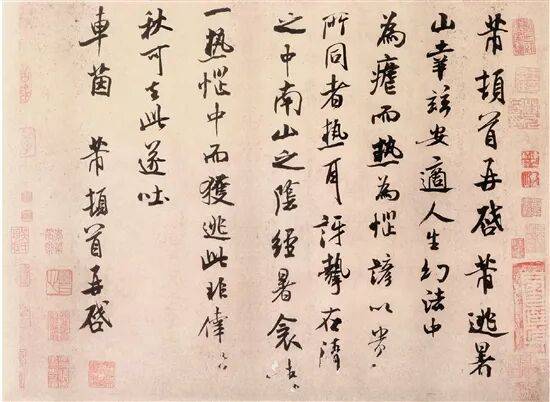 芾頓首再啓芾逃暑
山幸兹安適人生幻法中
為瘧而熱為惱諺以貴
所同者熱耳訝摯在清
之中南山之陰經暑衾
一熱惱中而獲逃此非偉
秋可去此遂吐
車茵 芾頓首再啓